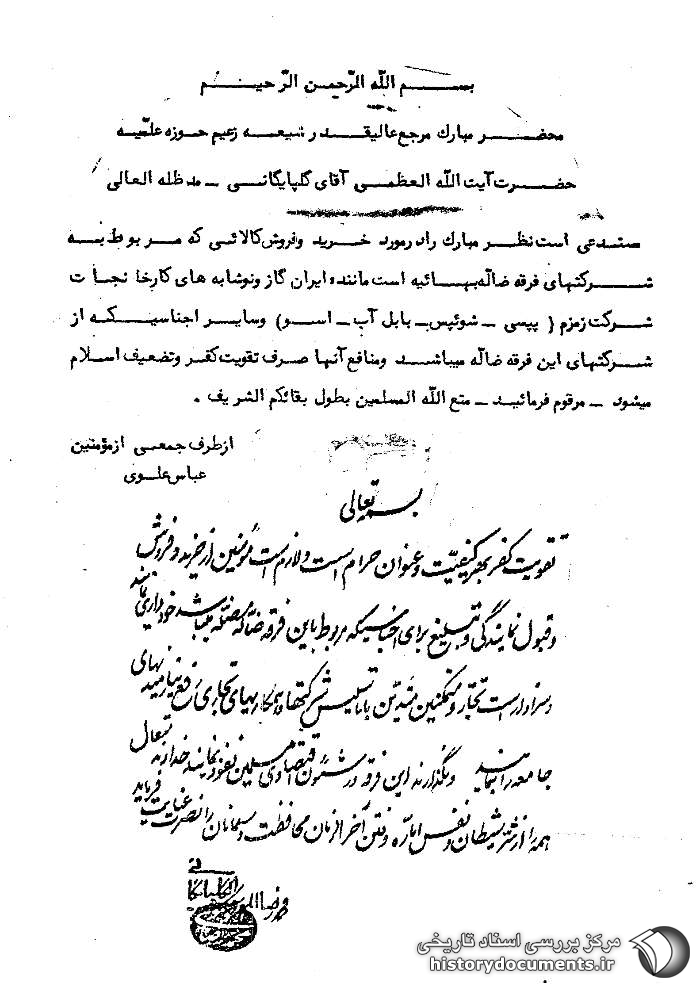 بسم الله الرحمن الرحیم
محضر مبارك مرجع عالیقدر شیعه زعیم حوزه علمیه
حضرت آیت الله العظمی آقای گلپایگانی – مد ظله العالی
مستدعی است نظر مبارك را در مورد خرید و فروش کالائی که مربوط به
شرکتهای فرقه ضاله بهائیه است مانند ایران گاز و نوشابه های کارخانجات
شرکت زمزم ( پپسی – شوئپس – بابل آپ – اسو ) وسایر اجناسیکه از
شرکتهای این فرقه ضاله میباشد ومنافع آنها صرف تقویت کفر وتضعیف اسلام
میشود – مرقوم فرمائید – متع الله المسلمین بطول بقائکم الشریف .
از طرف جمعی از مؤمنین
عباس علوی
بسمه تعالی
تقویت کفر بهر کیفیت و عنوان حرام است و لازم است مؤمنین از خرید و فروش
و قبول نمایندگی و تبلیغ برای اجناسیکه مربوط باین فرقه ضاله مضله میباشد خودداری نمایند
و سزاوار است تجار و متمکنین متدین با تاسیس شرکتها و همکاریهای تجاری رفع نیازمندیهای
جامعه را بنمایند و نگذارند این فرقه در شئون اقتصادی مسلمین نفوذ نمایند خداوند متعال
همه را از شر شیطان و نفس اماره و فتن آخر الزمان محافظت و مسلمانان را نصرت عنایت فرماید
محمد رضا الموسوی
الگلپایگانی
مرکز بررسی اسناد تاریخی
historydocuments.ir